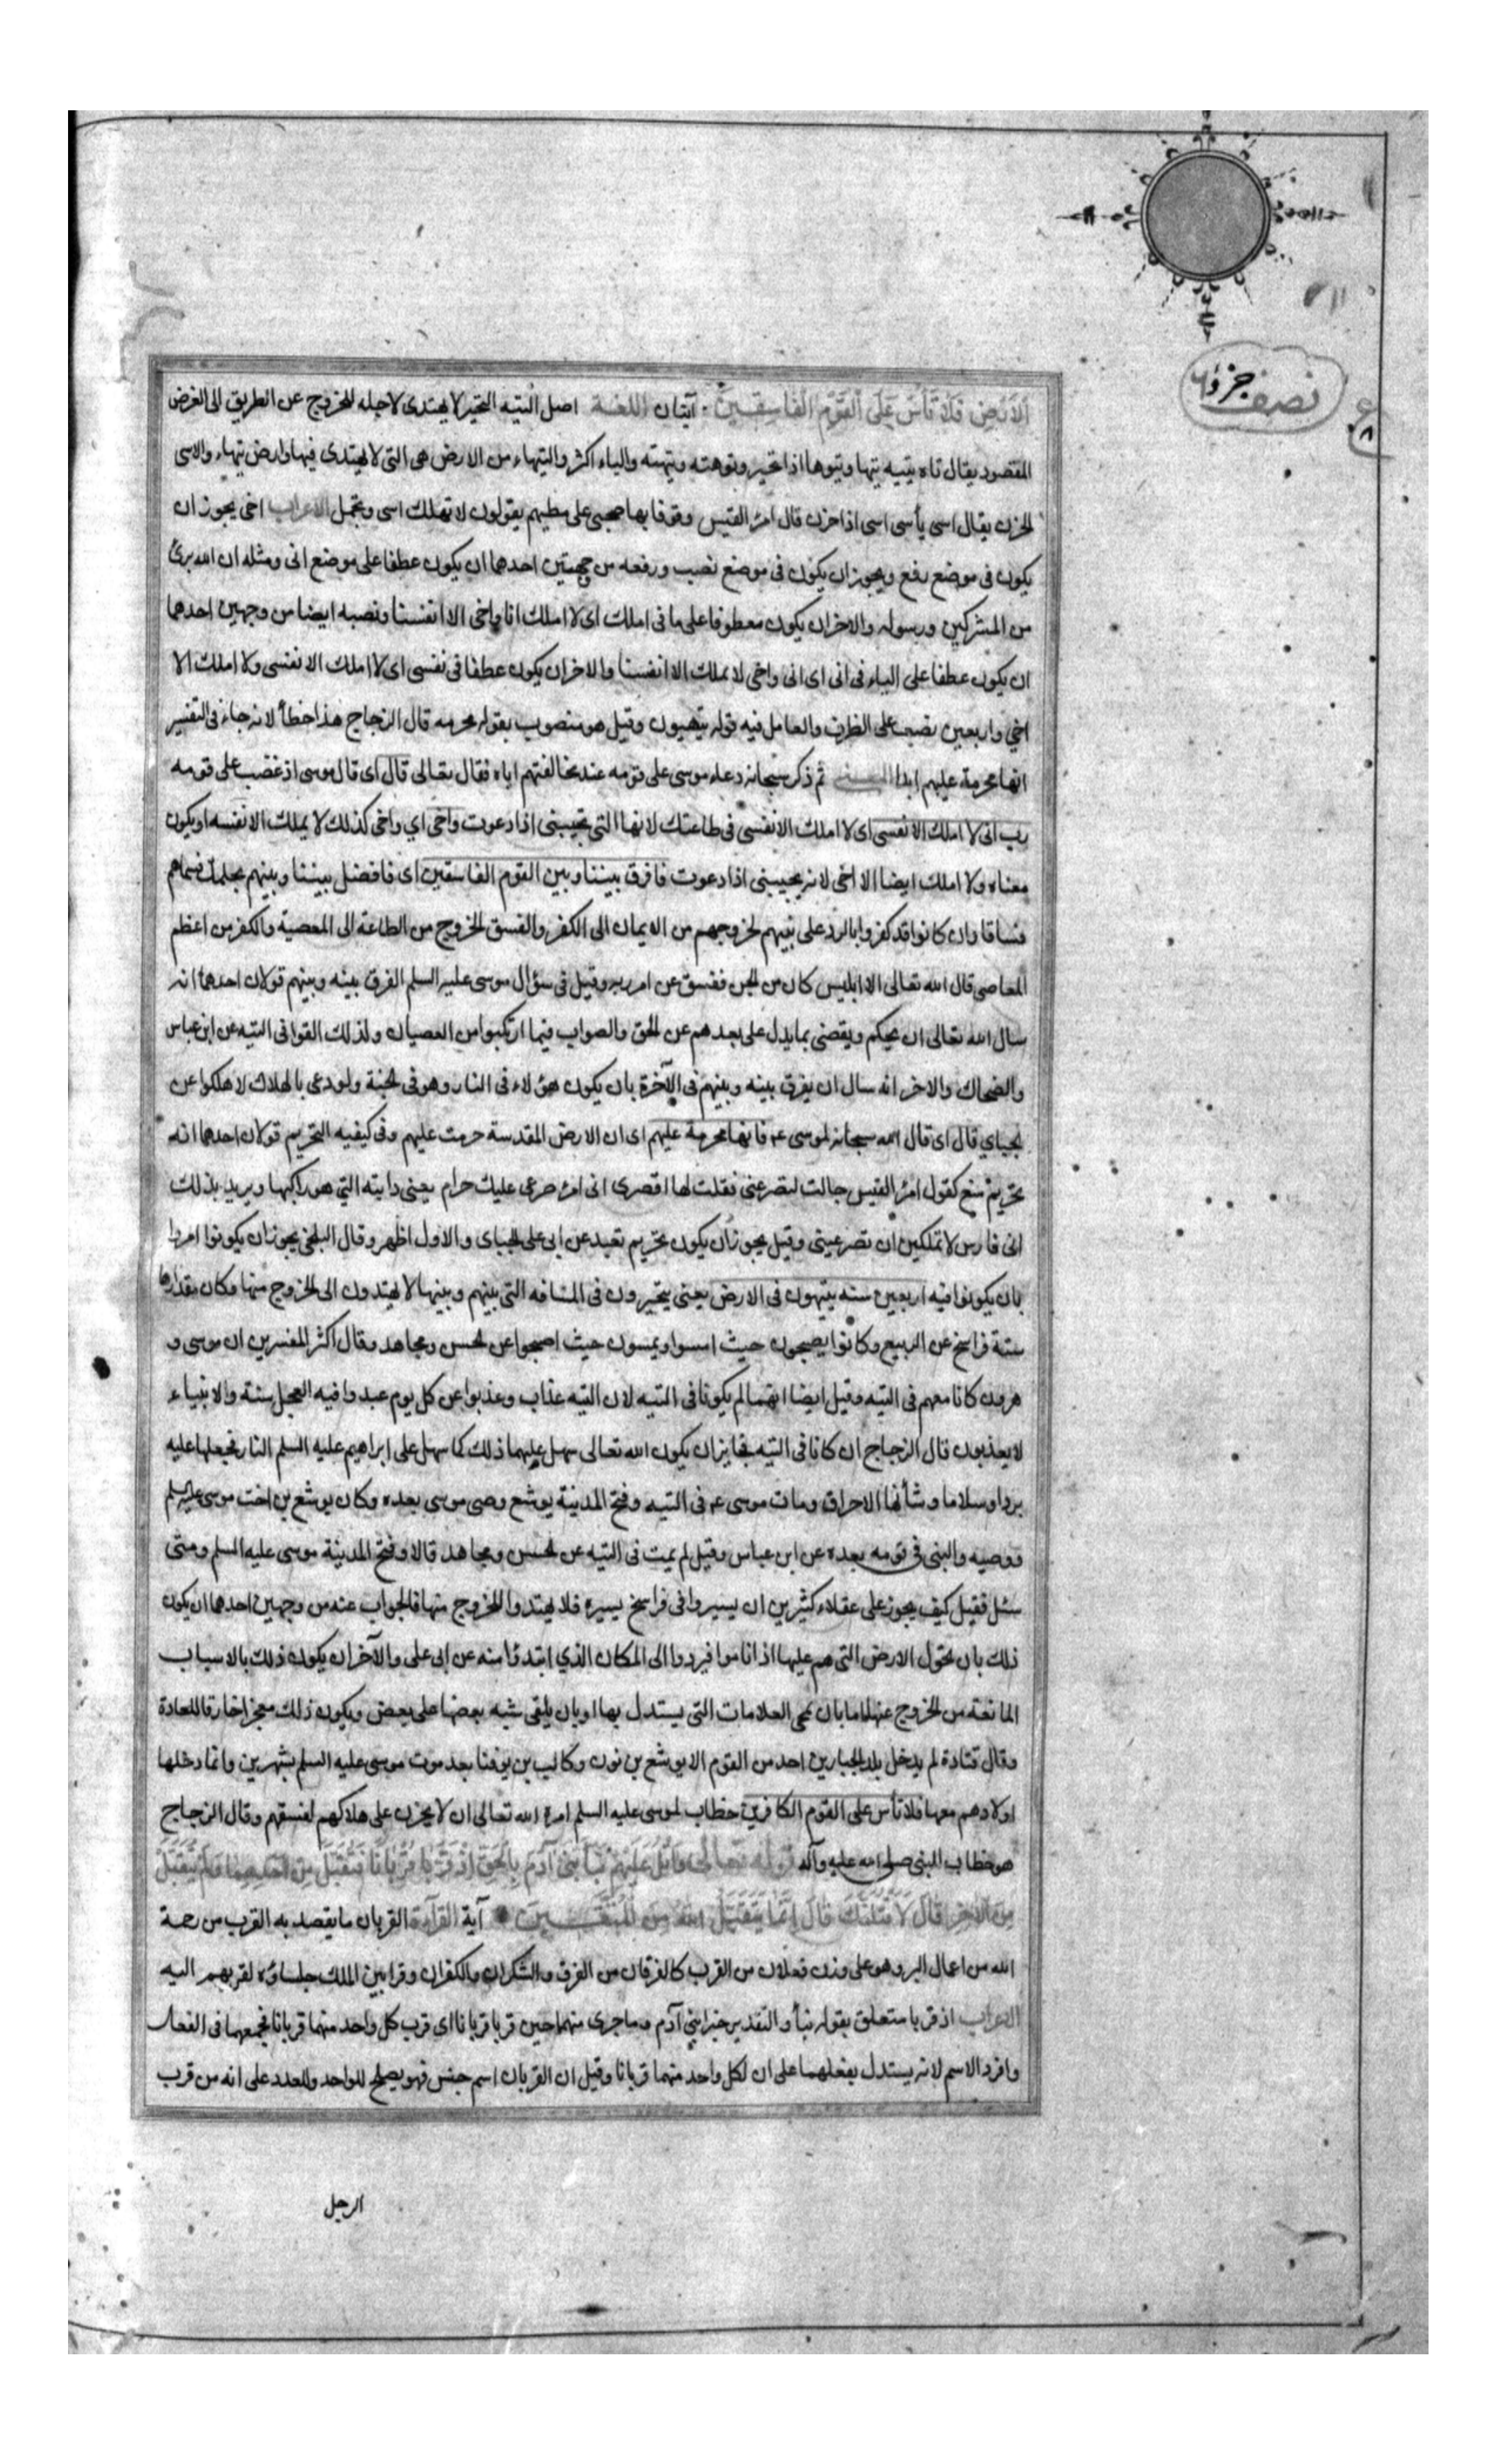 نصف جزؤ
ع
٨
الْاَرْضِ فَلَا تَأْسَ عَلَى الْقَوْمِ الْفَاسِقِينَ آيتان اللغة اصل التيه التحير لا يهتدى لاجله للخروج عن الطريق الى الغرض
المقصود يقال تاه يتيه تيها وتيوها اذا تحير وتوهته وتيهته والياء اكثر والتيهاء من الارض هى التى لا يهتدى فيها وارض تيهاء والاسى
الحزن يقال اسى يأسى اسى اذا حزن قال امرؤ القيس وقوفا بها صحبى على مطيهم يقولون لا تهلك اسى وتجمل الاعراب اخى يجوز ان
يكون فى موضع رفع ويجوز ان يكون فى موضع نصب ورفعه من جهتين احدهما ان يكون عطفا على موضع انى ومثله ان الله برئ
من المشركين ورسوله والاخر ان يكون معطوفا على ما فى املك اى لا املك انا واخى الا انفسنا ونصبه ايضا من وجهين احدهما
ان يكون عطفا على الياء فى انى اى انى واخى لا نملك الا انفسنا والاخر ان يكون عطفا فى نفسى اى لا املك الا نفسى ولا املك الا
اخي واربعين نصب على الظرف والعامل فيه قوله يتيهون وقيل هو منصوب بقوله محرمه قال الزجاج هذا خطأ لانه جاء فى التفسير
انها محرمة عليهم ابدا المعنى ثم ذكر سبحانه دعاء موسى على قومه عند مخالفتهم اياه فقال تعالى قال اى قال موسى اذ غضب على قومه
رب انى لا املك الا نفسى اى لا املك الا نفسى فى طاعتك لانها التى تجيبنى اذا دعوت واخى اي واخى كذلك لا يملك الا نفسه او يكون
معناه ولا املك ايضا الا اخى لانه يجيبنى اذا دعوت فافرق بيننا وبين القوم الفاسقين اى فافصل بيننا وبينهم بحكمك فسماهم
فساقا وان كانوا قد كفروا بالرد على نبيهم لخروجهم من الايمان الى الكفر والفسق الخروج من الطاعة الى المعصية والكفر من اعظم
المعاصى قال الله تعالى الا ابليس كان من الجن ففسق عن امر ربه وقيل فى سؤال موسى عليه السلم الفرق بينه وبينهم قولان احدهما انه
سال الله تعالى ان يحكم ويقضى بما يدل على بعدهم عن الحق والصواب فيما ارتكبوا من العصيان ولذلك القوا فى التيه عن ابن عباس
والضحاك والاخر انه سال ان يفرق بينه وبينهم فى الآخرة بان يكون هؤلاء فى النار وهو فى الجنة ولو دعى بالهلاك لاهلكوا عن
الجبايي قال اى قال الله سبحانه لموسى ع فانها محرمة عليهم اى ان الارض المقدسة حرمت عليهم وفى كيفيه التحريم قولان احدهما انه
تحريم منع كقول امرؤ القيس جالت لتصرعنى فقلت لها اقصرى انى امرؤ صرعى عليك حرام يعنى دابته التي هو راكبها ويريد بذلك
انى فارس لا تملكين ان تصرعينى وقيل يجوز أن يكون تحريم تعبد عن ابى على الجبائى والاول اظهر وقال البلخى يجوز ان يكونوا امروا
بان يكونوا فيه اربعين سنه يتيهون فى الارض يعنى يتحيرون فى المسافه التى بينهم وبينها لا يهتدون الى الخروج منها وكان مقدارها
ستة فراسخ عن الربيع وكانوا يصبحون حيث امسوا ويمسون حيث اصبحوا عن الحسن ومجاهد وقال اكثر المفسرين ان موسى و
هرون كانا معهم فى التيه وقيل ايضا انهما لم يكونا فى التيه لان التيه عذاب وعذبوا عن كل يوم عبدوا فيه العجل سنة والانبياء
لا يعذبون قال الزجاج ان كانا فى التيه فجايز ان يكون الله تعالى سهل عليهما ذلك كما سهل على ابراهيم عليه السلم النار فجعلها عليه
بردا وسلاما وشأنها الاحراق ومات موسى ع فى التيه وفتح المدينة يوشع وصى موسى بعده وكان يوشع بن اخت موسى عليه السلم
ووصيه والنبى فى قومه بعده عن ابن عباس وقيل لم يمت فى التيه عن الحسن ومجاهد قالا وفتح المدينة موسى عليه السلم ومتى
سئل فقيل كيف يجوز على عقلاء كثيرين ان يسيروا فى فراسخ يسيره فلا يهتدوا للخروج منها فالجواب عنه من وجهين احدهما ان يكون
ذلك بان تحول الارض التى هم عليها اذا ناموا فيردوا الى المكان الذي ابتدؤا منه عن ابى على والآخر ان يكون ذلك بالاسباب
المانعة من الخروج عنها اما بان تمحى العلامات التى يستدل بها او بان يلقى شبه بعضها على بعض ويكون ذلك معجزا خارقا للعادة
وقال قتادة لم يدخل بلد الجبارين احد من القوم الا يوشع بن نون وكالب بن يوفنا بعد موت موسى عليه السلم بشهرين وانما دخلها
اولادهم معهما فلا تأس على القوم الكافرين خطاب لموسى عليه السلم امره الله تعالى ان لا يحزن على هلاكهم لفسقهم وقال الزجاج
هو خطاب للنبى صلى الله عليه وآله قوله تعالى وَاتْلُ عَلَيْهِمْ نَبَأَ ابْنَىْ آدَمَ بِالْحَقِّ اِذْ قَرَّبَا قُرْبَانًا فَتُقُبِّلَ مِنْ اَحَدِهِمَا وَلَمْ يُتَقَبَّلْ
مِنَ الْآخَرِ قَالَ لَاَقْتُلَنَّكَ قَالَ اِنَّمَا يَتَقَبَّلُ اللهُ مِنَ الْمُتَّقِينَ آية القرآءة القربان ما يقصد به القرب من رحمة
الله من اعمال البر وهو على وزن فعلان من القرب كالفرقان من الفرق والشكران والكفران وقرابين الملك جلساؤه لقربهم اليه
الاعراب اذ قربا متعلق بقوله نبأ والتقدير خبر ابنى آدم وما جرى منهما حين قربا قربانا اى قرب كل واحد منهما قربانا فجمعهما فى الفعل
وافرد الاسم لانه يستدل بفعلهما على ان لكل واحد منهما قربانا وقيل ان القربان اسم جنس فهو يصلح للواحد والعدد على انه من قرب
الرجل